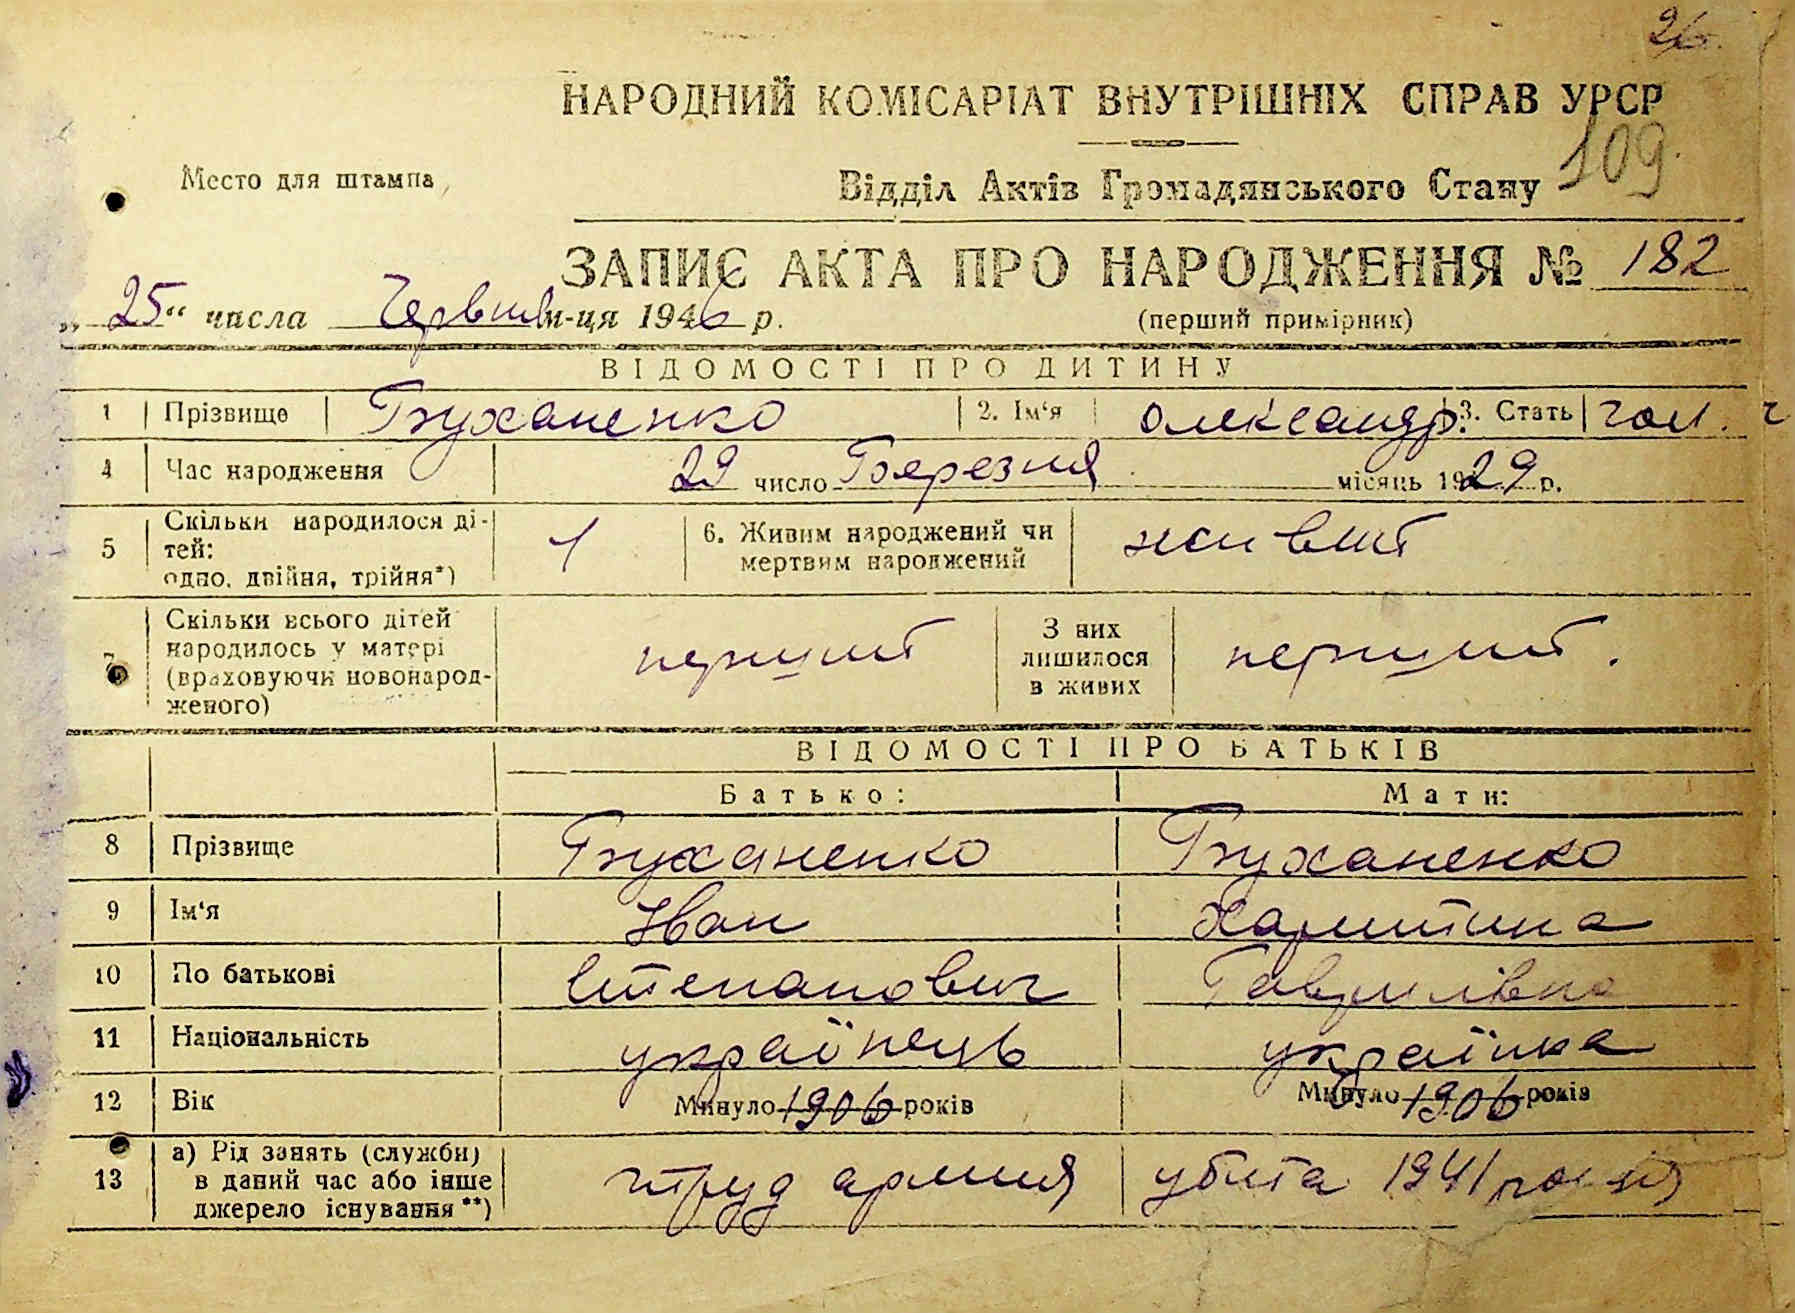 26.
НАРОДНИЙ КОМІСАРІАТ ВНУТРІШНІХ СПРАВ УРСР
109.
Место для штампа
Відділ Актів Громадянського Стану
ЗАПИС АКТА ПРО НАРОДЖЕННЯ № 182
„25“ числа Червня м-ця 1946 р.
(перший примірник)
ВІДОМОСТІ ПРО ДИТИНУ
1 Прізвище Буханенко 2. Ім‘я Олександр. 3. Стать чол. ч
4 Час народження 29 число Березня місяць 1929 р.
5 Скільки народилося ді-
тей:
одно, двійня, трійня*)
1
6. Живим народжений чи
мертвим народжений
живит
7 Скільки всього дітей
народилось у матері
(враховуючи новонарод-
женого)
першит
З них
лишилося
в живих
першит.
ВІДОМОСТІ ПРО БАТЬКІВ
Батько: Мати:
8 Прізвище Буханенко Буханенко
9 Ім‘я Іван Харитина
10 По батькові Степанович Гаврилівна
11 Національність українець українка
12 Вік Минуло 1906 років Минуло 1906 років
13 а) Рід занять (служби)
в даний час або інше
джерело існування**)
труд армия
убита 1941